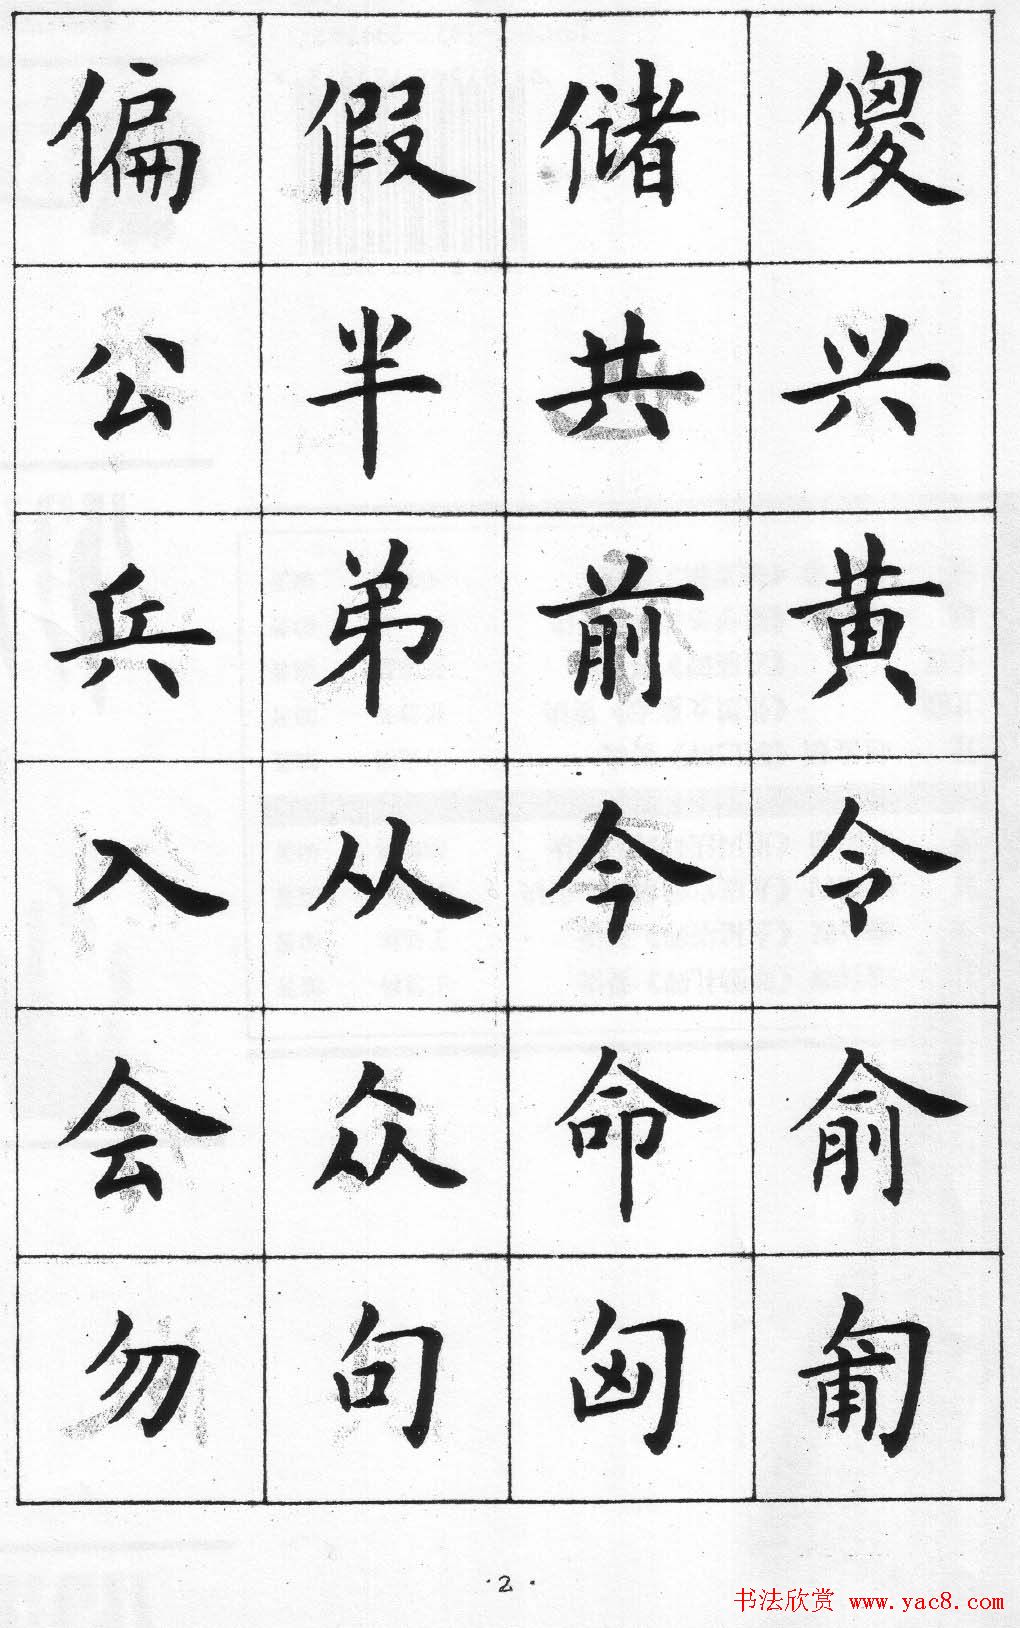 偏假储傻
公半共兴
兵弟前黄
入从今令
会众命俞
勿句匈匍
·2·
书法欣赏 www.yac8.com